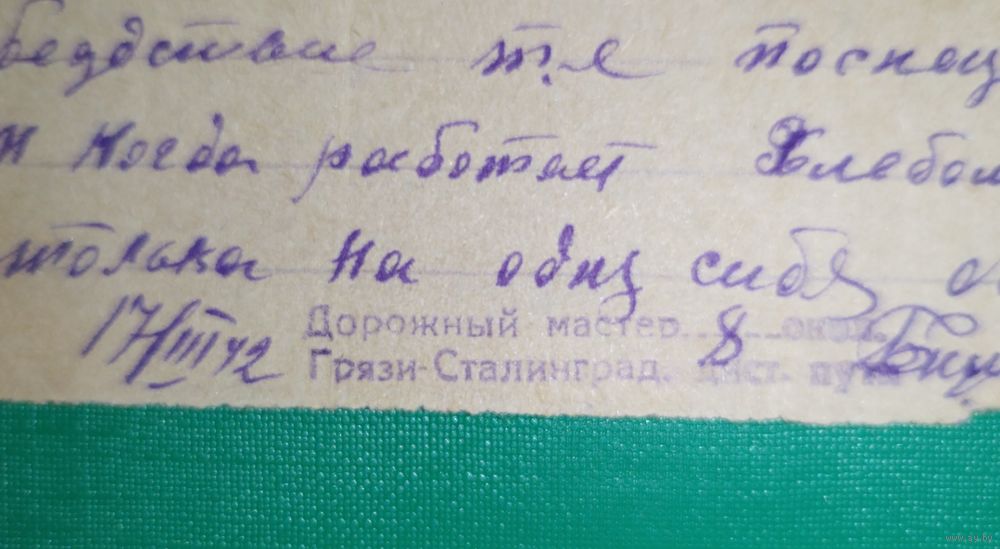 бездствие т.е
н когда работает Хлебом
только на одну себя
17/III 42
Дорожный мастер 8 окол.
Грязи-Сталинград. дист. пути
www.ay.by